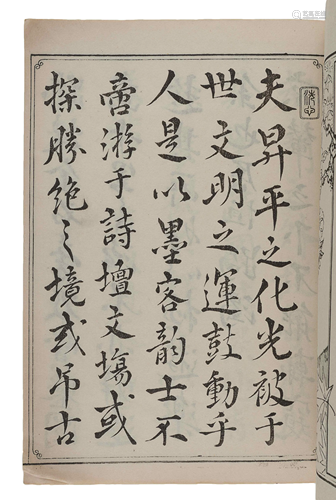 夫昇平之化光被于
世文明之運鼓動乎
人是以墨客韵士不
啻游于詩壇文塲或
探勝絶之境或吊古